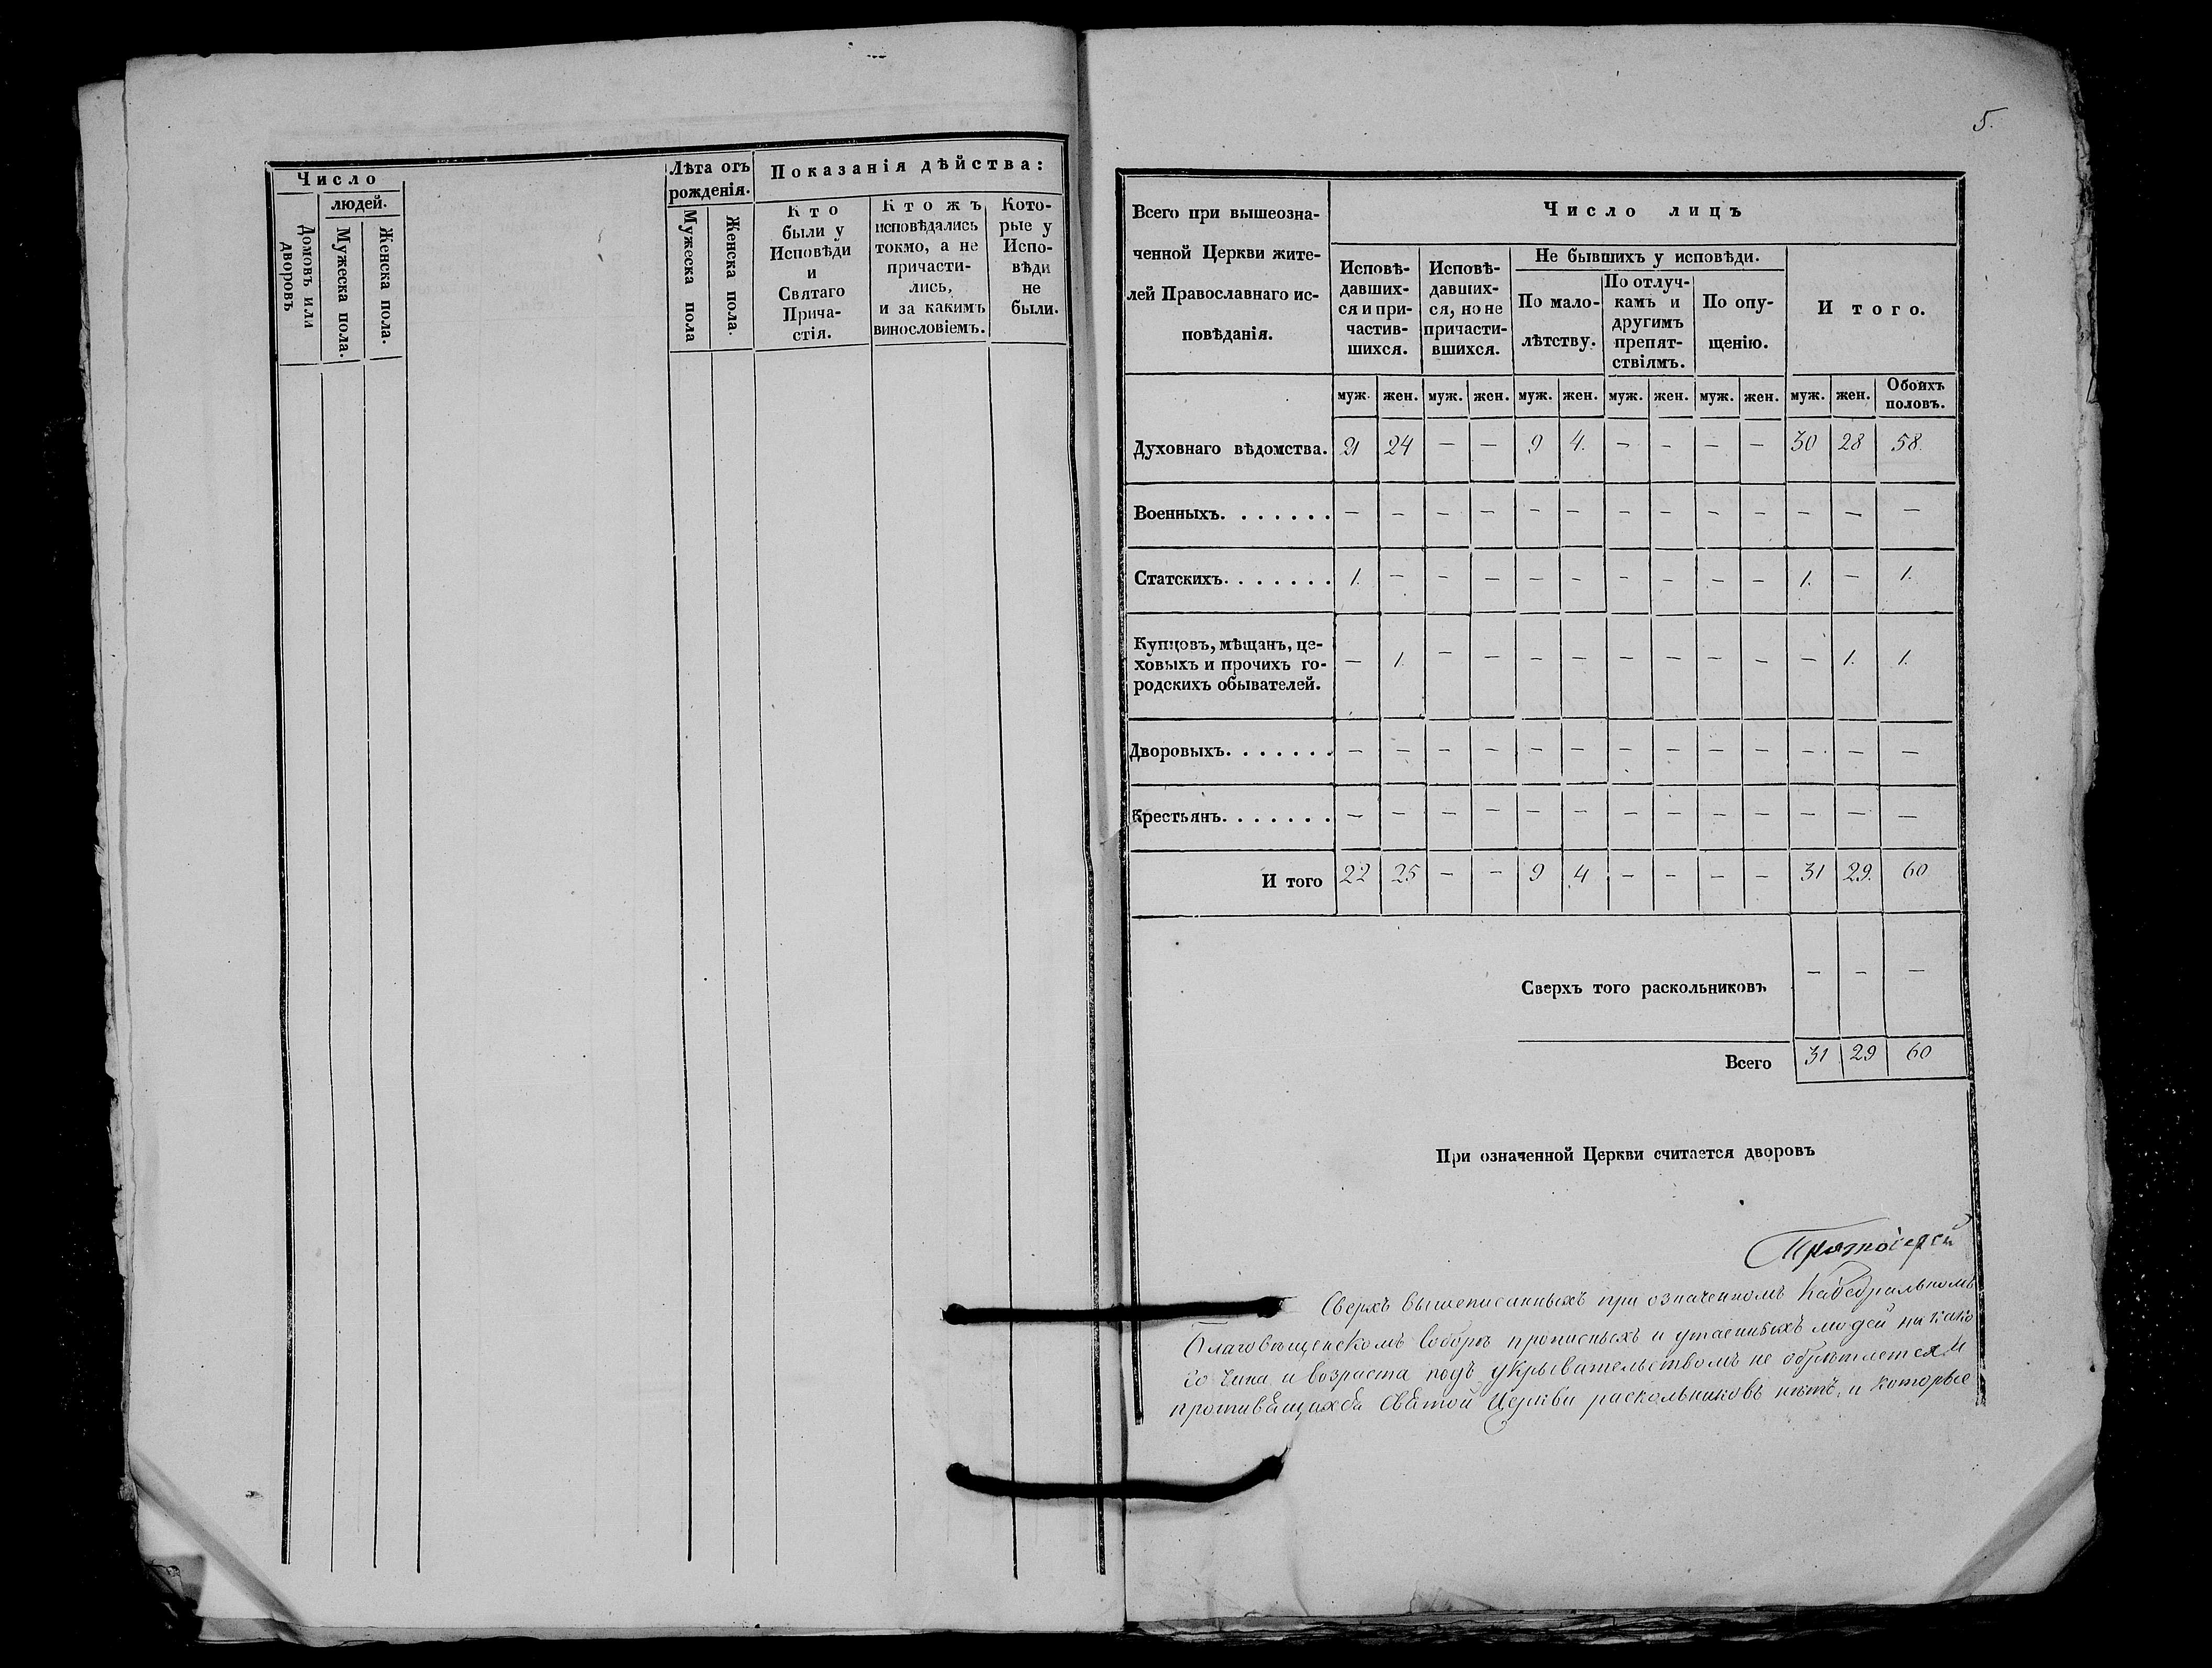 Число
людей.
Домовъ или дворовъ
Мужеска пола.
Женска пола.
Лѣта отъ
рожденія.
Мужеска пола
Женска пола.
Показанія дѣйства:
Кто
были у
Исповѣди
и
Святаго
Прича-
стія.
Кто жъ
исповѣдались
токмо, а не
причасти-
лись,
и за какимъ
винословіемъ.
Кото-
рые у
Испо-
вѣди
не
были.
5.
Всего при вышеозна-
ченной Церкви жите-
лей Православнаго ис-
повѣданія.
Число лицъ
Исповѣ-
давших-
ся и при-
частив-
шихся.
Исповѣ-
давших-
ся, но не
причасти-
вшихся.
Не бывшихъ у исповѣди.
По мало-
лѣтству.
По отлуч-
камъ и
другимъ
препят-
ствіямъ.
По опу-
щенію.
И того.
муж. жен. муж. жен. муж. жен. муж. жен. муж. жен. муж. жен. Обоихъ
половъ.
Духовнаго вѣдомства. 21 24 — — 9 4. — — — — 30 28 58.
Военныхъ. . . . . . . — — — — — — — — — — — — —
Статскихъ. . . . . . . 1. — — — — — — — — — 1. — 1.
Купцовъ, мѣщанъ, це-
ховыхъ и прочихъ го-
родскихъ обывателей. — 1. — — — — — — — — — 1. 1.
Дворовыхъ. . . . . . . — — — — — — — — — — — — —
Крестьянъ. . . . . . . — — — — — — — — — — — — —
И того 22 25 — — 9 4 — — — — 31 29. 60
Сверхъ того раскольниковъ — — —
Всего 31 29 60
При означенной Церкви считается дворовъ
Протоіерей
Сверхъ вышеписанныхъ при означенномъ Каѳедральномъ
Благовѣщенскомъ Соборѣ прописныхъ и утаенныхъ людей ни како
го чина и возраста подъ укрывательствомъ не обрѣтается и
противящихся Святой Церкви раскольниковъ нѣтъ, и которые